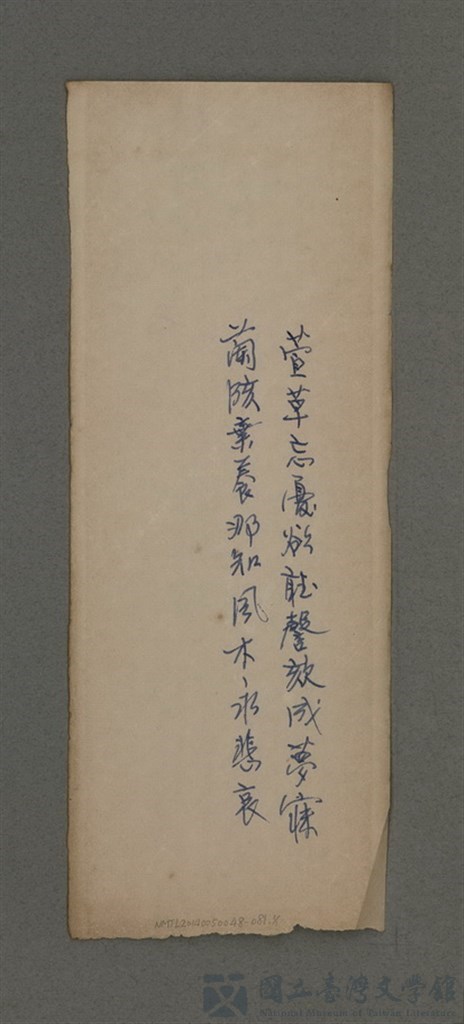 萱草忘憂欲聽謦欬成夢寐
蘭陔棄養那知風木永悲哀
國立臺灣文學館
National Museum of Taiwan Literature